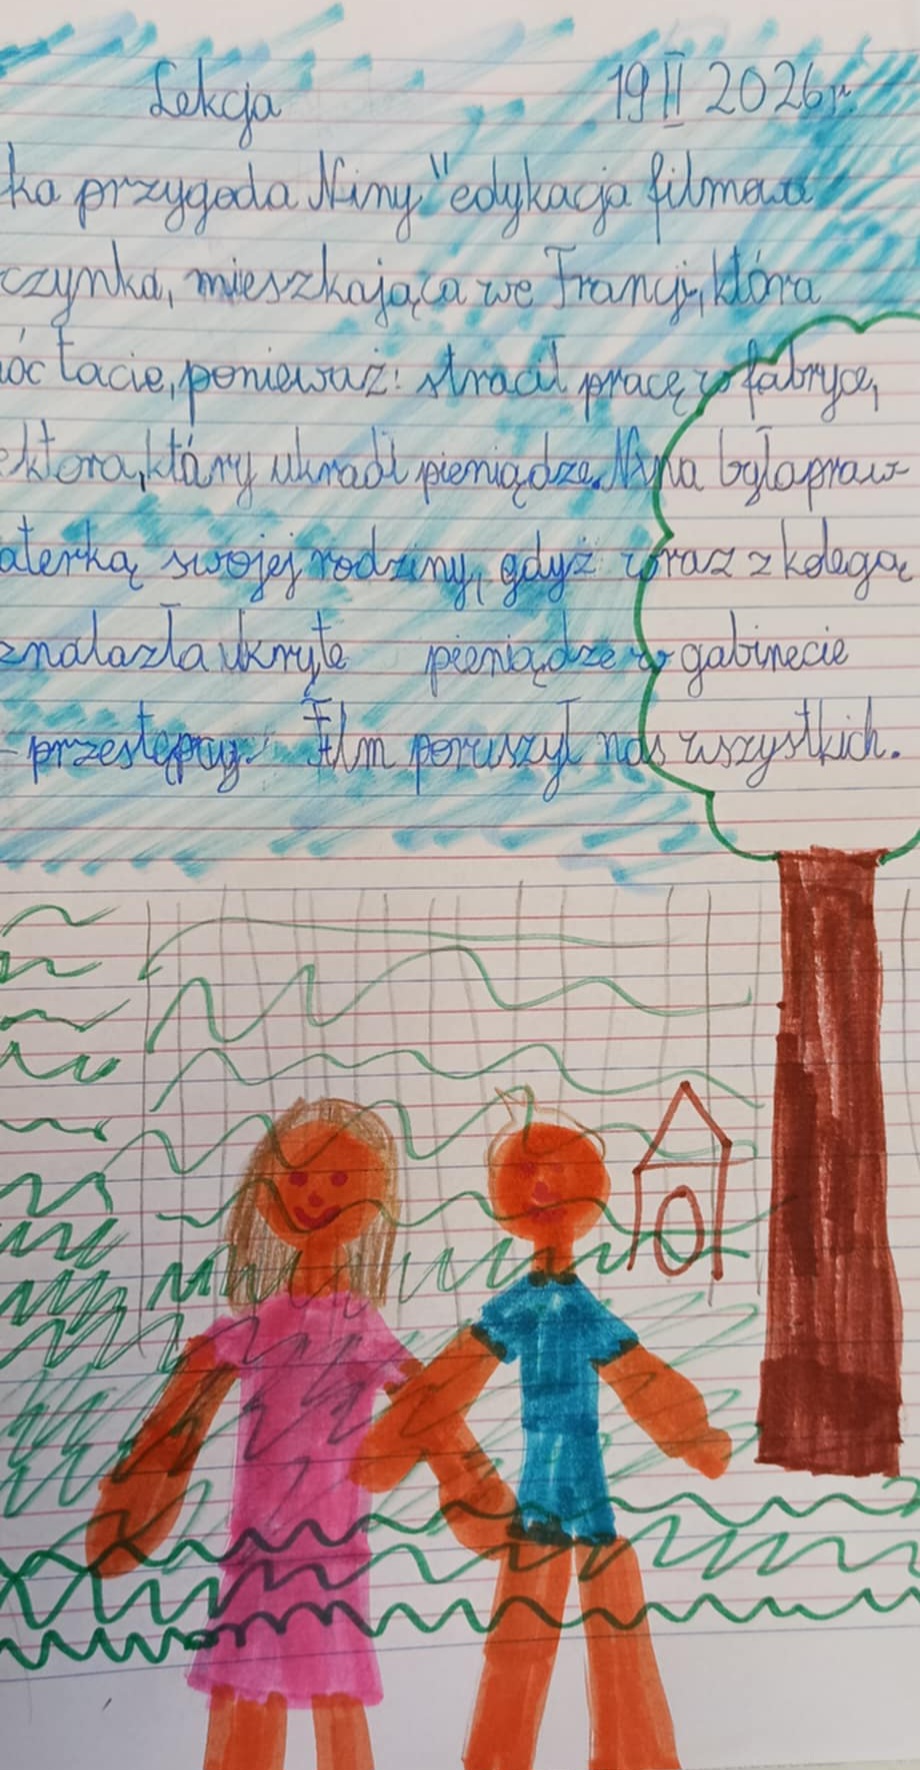 Lekcja 19 II 2026r.
ka przygoda Niny" edykacja filmowa
czynka, mieszkająca we Francji, która
óc tacie, ponieważ: stracił pracę w fabryce,
ektora, który ukradł pieniądze. Nina była praw-
aterką swojej rodziny, gdyż wraz z kolegą
znalazła ukryte pieniądze w gabinecie
- przestępcy. Film poruszył nas wszystkich.